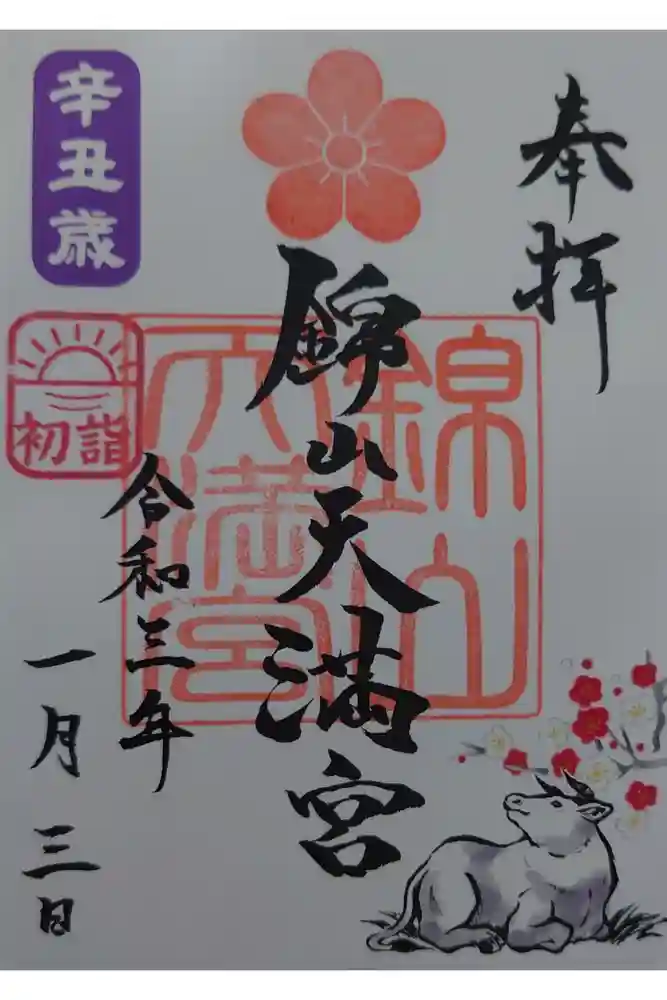 奉拝
錦山天満宮
錦山
天満宮
令和三年
一月三日
辛丑歳
初詣